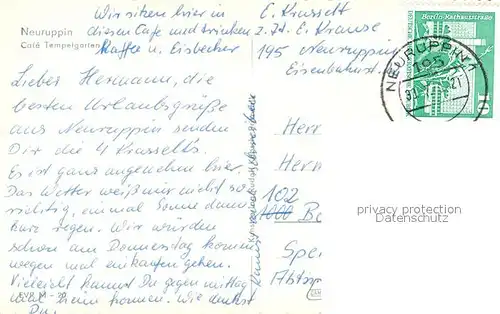 Neuruppin
Café Tempelgarten
Wir sitzen hier in
diesem Cafe und trinken
Kaffee u. Eisbecher
Lieber Hermann, die
besten Urlaubsgrüße
aus Neuruppin senden
Dir die 4
Es ist ganz angenehm hier.
Das Wetter weiß nur nicht so
richtig, einmal Sonne dann
kurz regen. Wir würden
schon am Donnerstag kommen
wegen mal einkaufen gehen.
Vielleicht kannst Du gegen mittag
heim kommen. Wie denkst
Du
EVP M -,20
E. Krause
195 Neuruppin
Eisenbahnst.
Berlin Rathausstraße
10
NEURUPPIN 1
195
Herr
Her
102
1000 Be
Spe
privacy protection
www.ansichtskarten-center.de